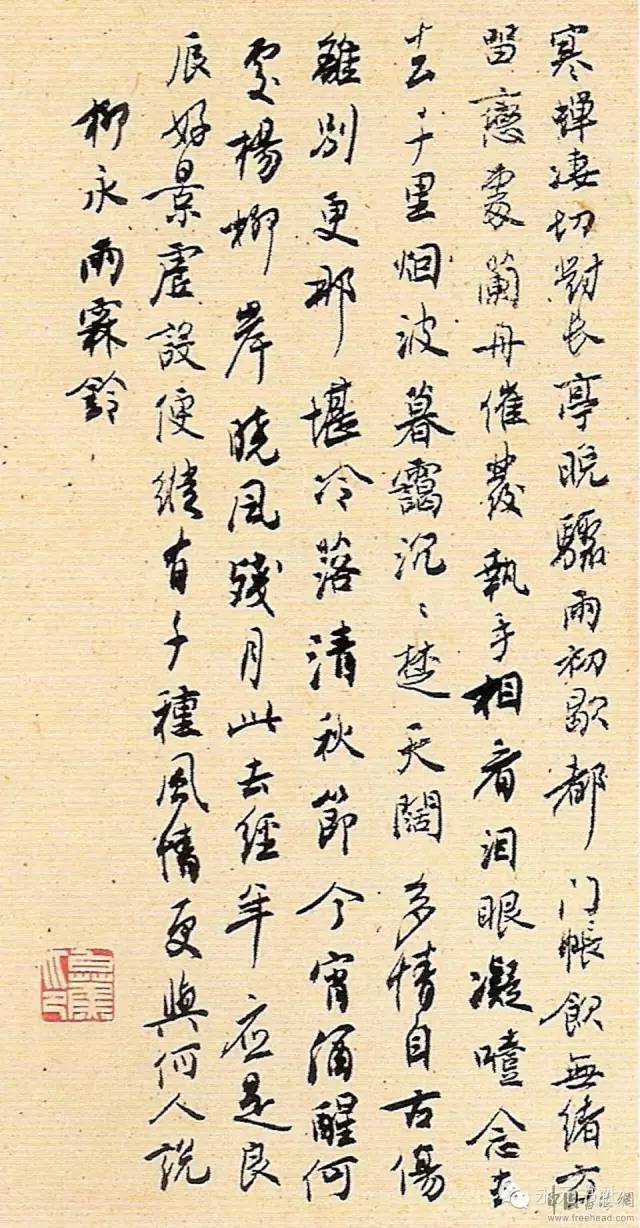 寒蝉凄切對长亭晚驟雨初歇都门帳飲無緒方
留戀處蘭舟催發執手相看泪眼凝噎念去
去千里烟波暮靄沉〻楚天闊多情自古傷
離别更那堪冷落清秋節今宵酒醒何
處楊柳岸晓風残月此去經年应是良
辰好景虚設便縱有千種風情更與何人説
柳永雨霖鈴
www.freehead.com